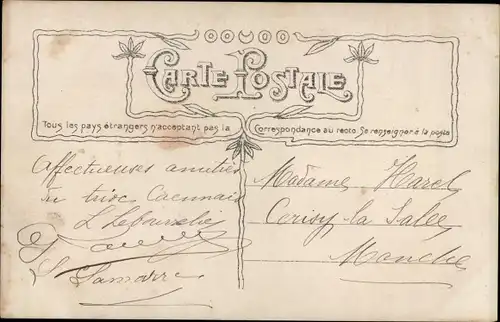 CARTE POSTALE
Tous les pays étrangers n'acceptant pas la Correspondance au recto Se renseigner à la poste
Affectueuses amitiés
du trio Caennais
L Lebourrelié
L Lamarre
Madame Harel
Cerisy la Salle
Manche